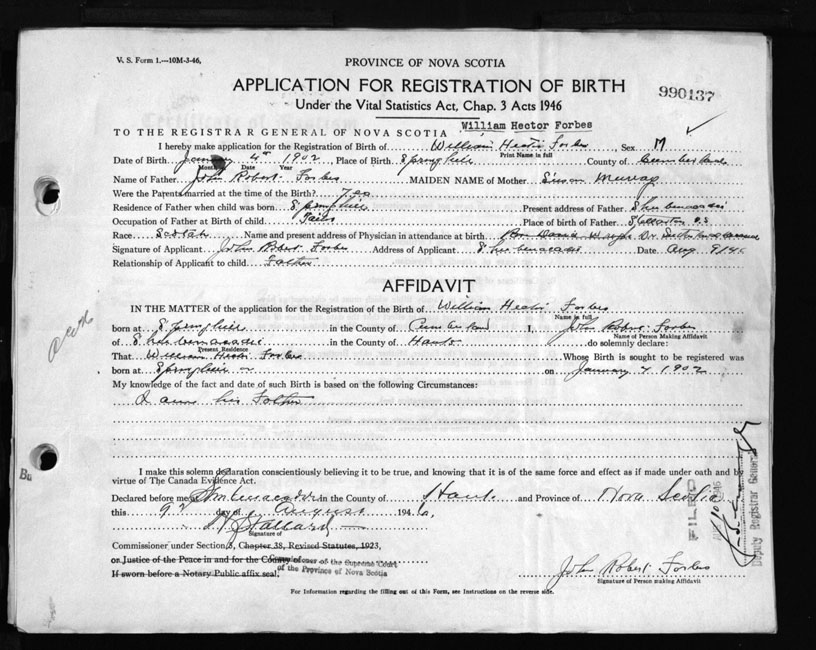 V. S. Form 1.—10M-3-46,
PROVINCE OF NOVA SCOTIA
APPLICATION FOR REGISTRATION OF BIRTH
990137
Under the Vital Statistics Act, Chap. 3 Acts 1946
William Hector Forbes
TO THE REGISTRAR GENERAL OF NOVA SCOTIA
I hereby make application for the Registration of Birth of William Hector Forbes Sex M
Print Name in full
Date of Birth January 4th 1902 Place of Birth Springhill County of Cumberland
Month Date Year
Name of Father John Robert Forbes MAIDEN NAME of Mother Susan Murray
Were the Parents married at the time of the Birth? Yes
Residence of Father when child was born Springhill Present address of Father Shubenacadie
Occupation of Father at Birth of child Place of birth of Father
Race Scotch Name and present address of Physician in attendance at birth
Signature of Applicant John Robert Forbes Address of Applicant Shubenacadie Date Aug 9/46
Relationship of Applicant to child Father
AFFIDAVIT
IN THE MATTER of the application for the Registration of the Birth of William Hector Forbes
Name in full
born at Springhill in the County of Cumberland I, John Robert Forbes
Name of Person Making Affidavit
of Shubenacadie in the County of Hants do solemnly declare:
Present Residence
That William Hector Forbes Whose Birth is sought to be registered was
born at Springhill on on January 4 1902
My knowledge of the fact and date of such Birth is based on the following Circumstances:
I am his Father
I make this solemn declaration conscientiously believing it to be true, and knowing that it is of the same force and effect as if made under oath and by
virtue of The Canada Evidence Act.
Declared before me at Shubenacadie in the County of Hants and Province of Nova Scotia
this 9th day of August 1946,
Signature of
Commissioner under Section 3, Chapter 38, Revised Statutes, 1923,
or Justice of the Peace in and for the County of
Commissioner of the Supreme Court
of the Province of Nova Scotia
If sworn before a Notary Public affix seal.
John Robert Forbes
Signature of Person making Affidavit
For Information regarding the filling out of this Form, see Instructions on the reverse side.
FILED
Deputy Registrar General